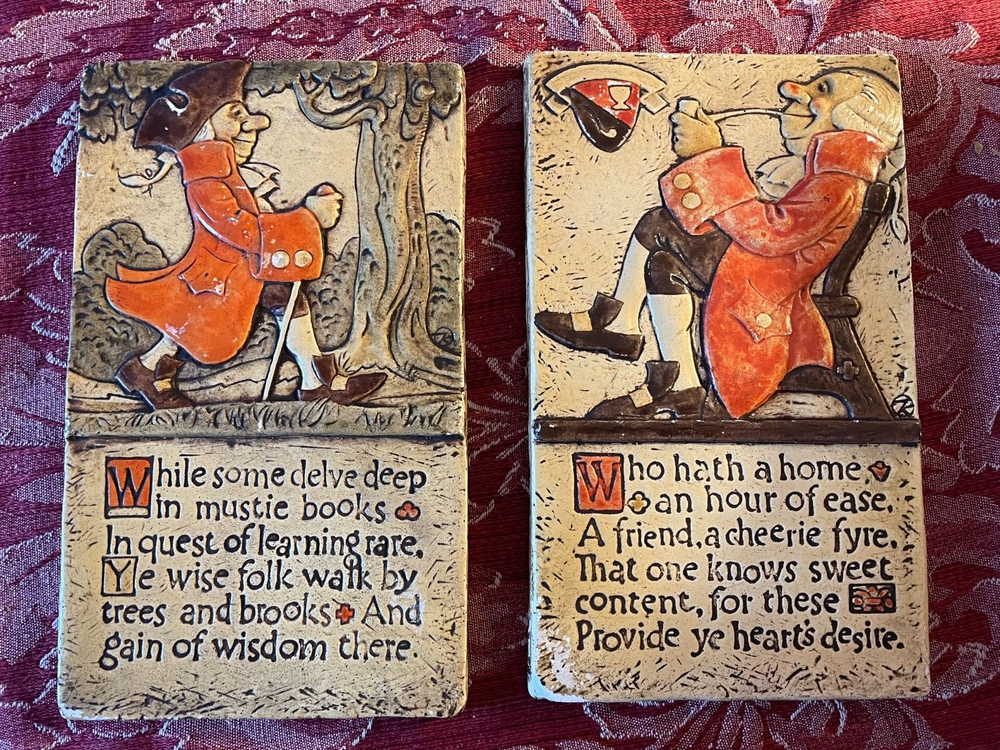 While some delve deep
in mustie books
In quest of learning rare,
Ye wise folk walk by
trees and brooks And
gain of wisdom there.
Who hath a home,
an hour of ease,
A friend, a cheerie fyre,
That one knows sweet
content, for these
Provide ye heart's desire.